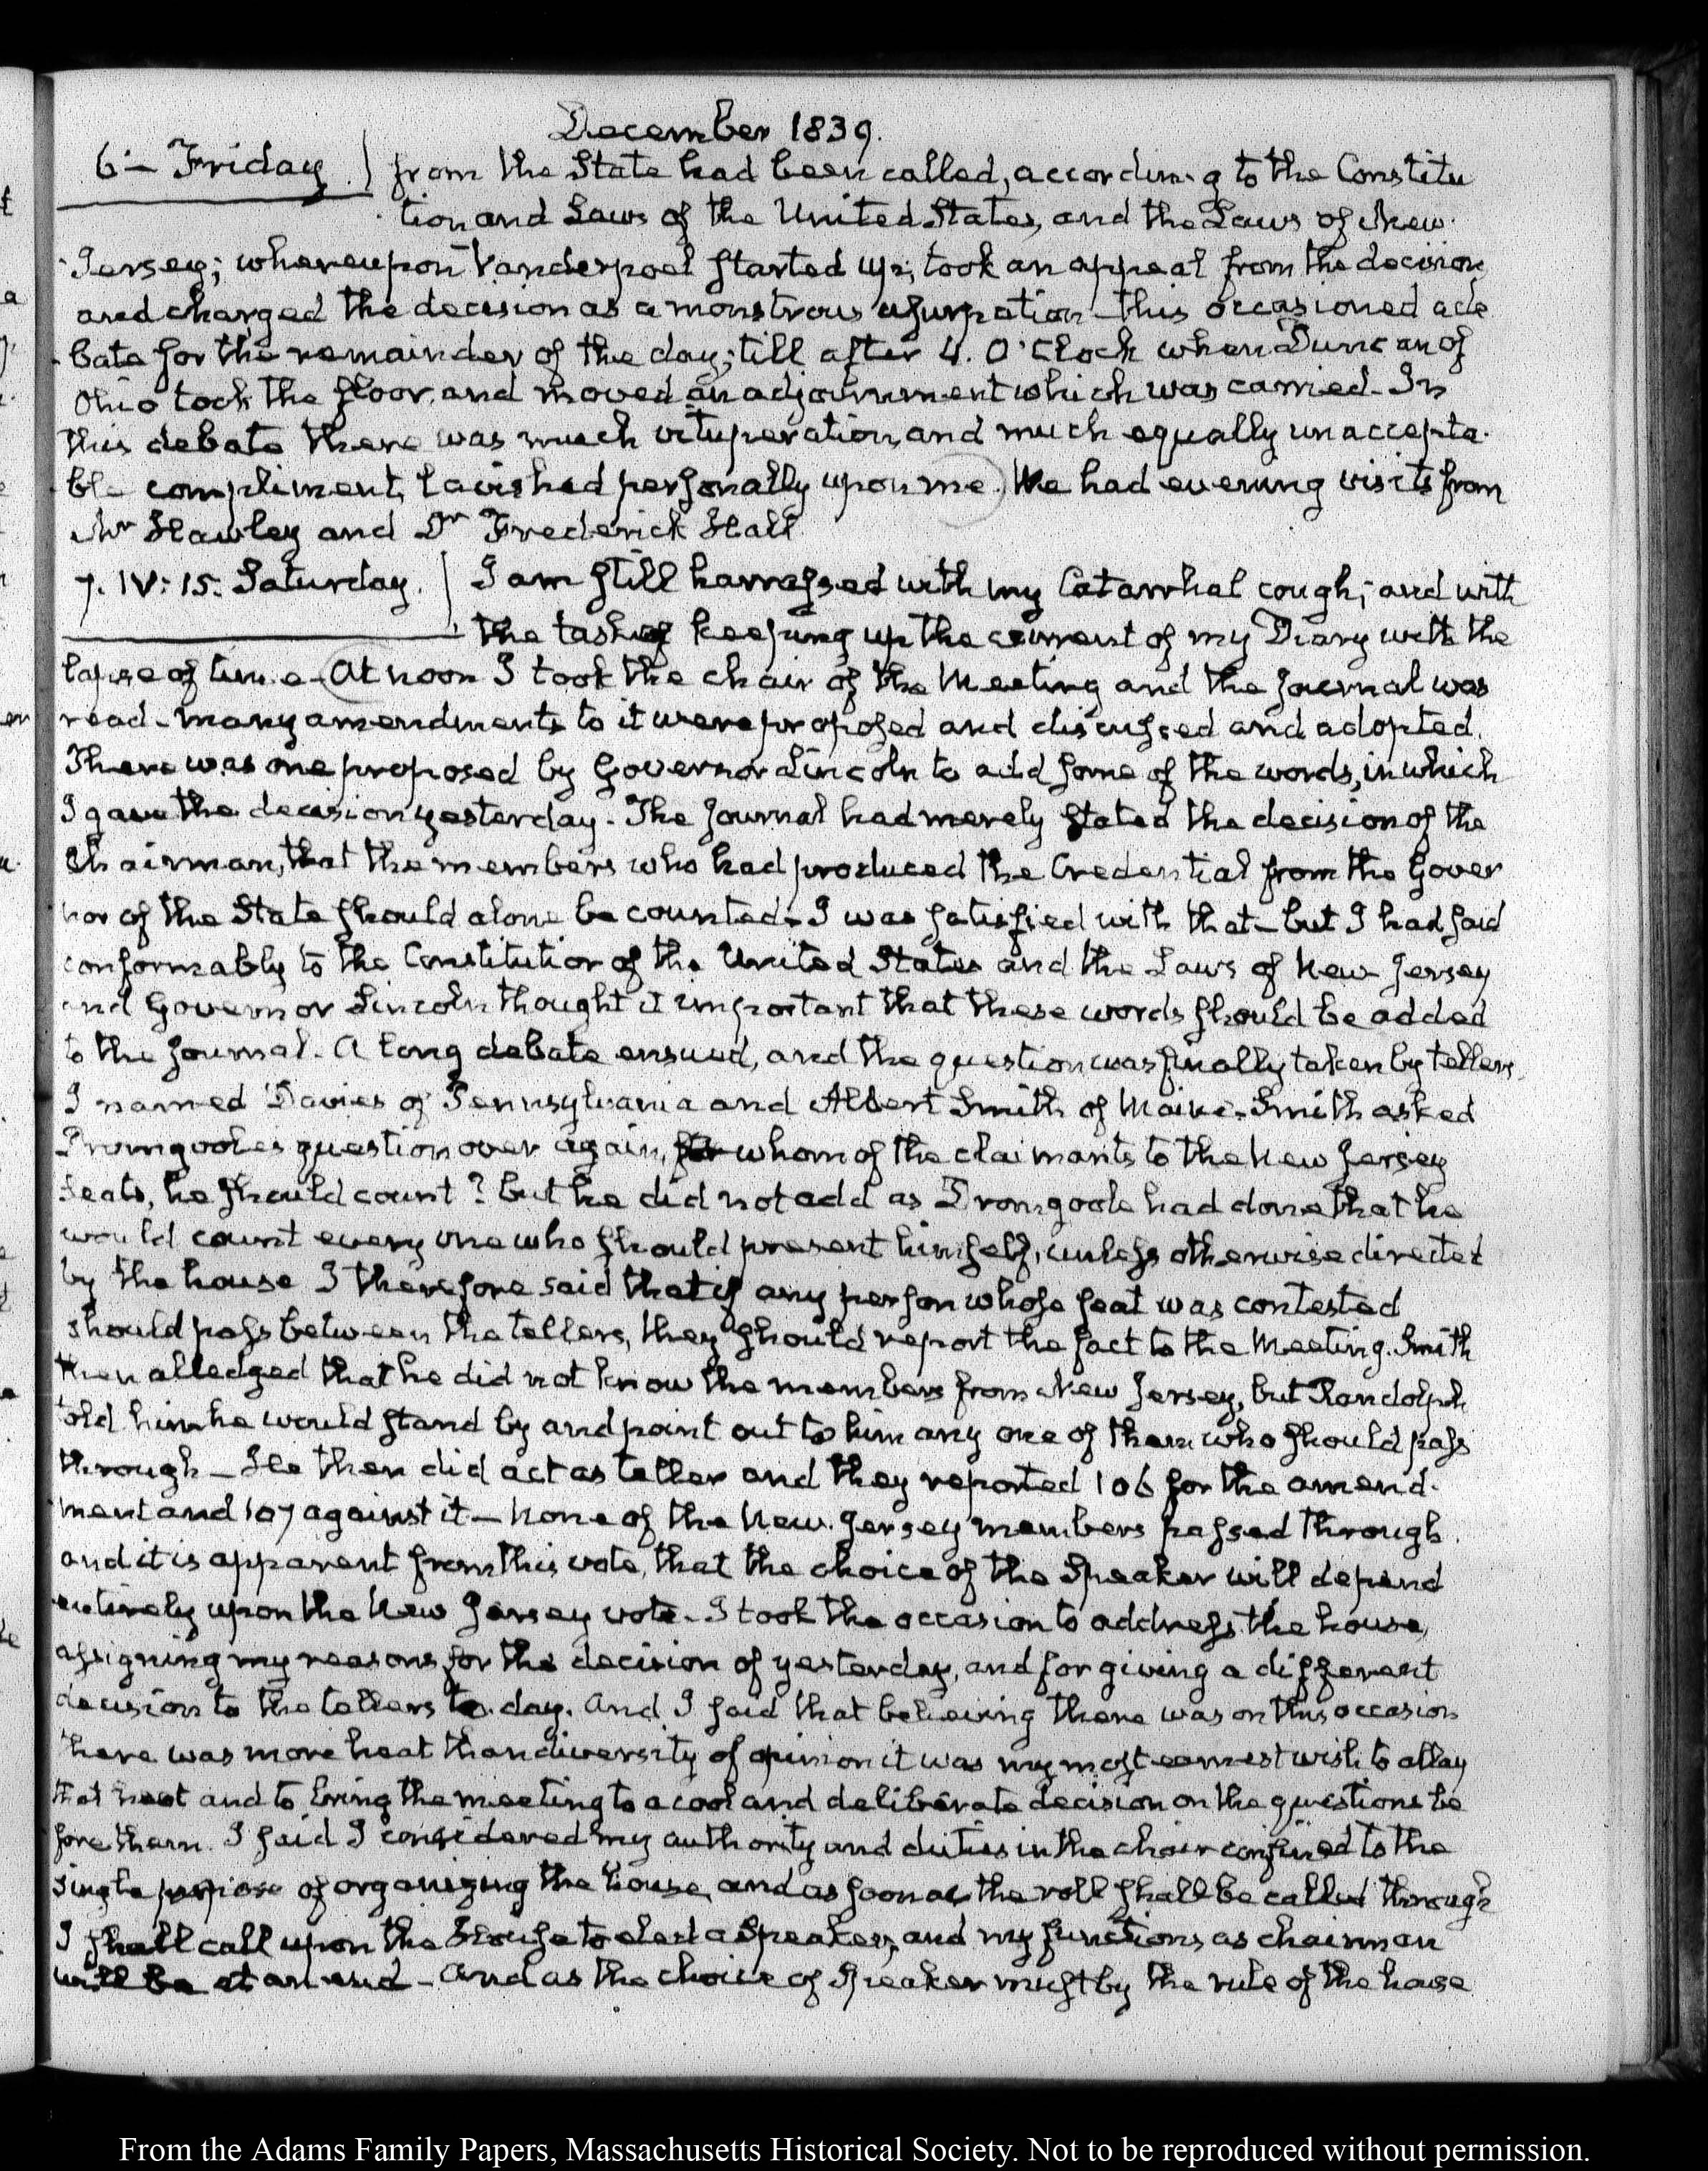 December 1839.
6.— Friday.
from the State had been called, according to the Constitu
tion and Laws of the United States, and the Laws of New-
Jersey; whereupon Vanderpoel started up; took an appeal from the decision
and charged the decision as a monstrous usurpation—this occasioned a de
bate for the remainder of the day; till after 4. O'Clock when Duncan of
Ohio took the floor, and moved an adjournment which was carried. In
this debate there was much vituperation, and much equally unaccepta-
ble compliment, lavished personally upon me. We had evening visits from
Mr Hawley and Dr Frederick Hall
7. IV: 15. Saturday.
I am still harrassed with my Catarrhal cough; and with
the task of keeping up the current of my Diary with the
lapse of time—At noon I took the chair of the Meeting and the Journal was
read—many amendments to it were proposed and discussed and adopted.
There was one proposed by Governor Lincoln to add some of the words, in which
I gave the decision yesterday. The Journal had merely stated the decision of the
Chairman, that the members who had produced the Credential from the Gover
nor of the State should alone be counted. I was satisfied with that—but I had said
conformably to the Constitution of the United States and the Laws of New Jersey
and Governor Lincoln thought it important that these words should be added
to the Journal. A long debate ensued, and the question was finally taken by tellers,
I named Davies of Pennsylvania and Albert Smith of Maine. Smith asked
Dromgooles question over again, whom of the claimants to the New Jersey
Seats, he should count? but he did not add as Dromgoole had done that he
would count every one who should present himself, unless otherwise directed
by the house I therefore said that if any person whose seat was contested
should pass between the tellers, they should report the fact to the Meeting. Smith
then alledged that he did not know the members from New Jersey, but Randolph
told him he would stand by and point out to him any one of them who should pass
through—He then did act as teller and they reported 106 for the amend-
ment and 107 against it—None of the New-Jersey members passed through.
and it is apparent from this vote, that the choice of the Speaker will depend
entirely upon the New Jersey vote. I took the occasion to address the house,
assigning my reasons for the decision of yesterday, and for giving a different
decision to the tellers to-day. And I said that believing there was on this occasion
there was more heat than diversity of opinion it was my most earnest wish to allay
that heat and to bring the meeting to a cool and deliberate decision on the questions be
fore them. I said I considered my authority and duties in the chair confined to the
single purpose of organizing the house, and as soon as the roll shall be called through
I shall call upon the House to elect a Speaker, and my functions as chairman
will be at an end—And as the choice of Speaker must by the rule of the house
From the Adams Family Papers, Massachusetts Historical Society. Not to be reproduced without permission.